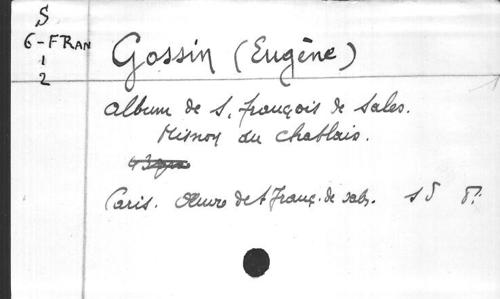 S
6-FRAN
1
2
Gossin (Eugène)
Album de S. françois de Sales.
Mission du Chablais.
Paris. Oeuvre de St Franç. de Sales. s d